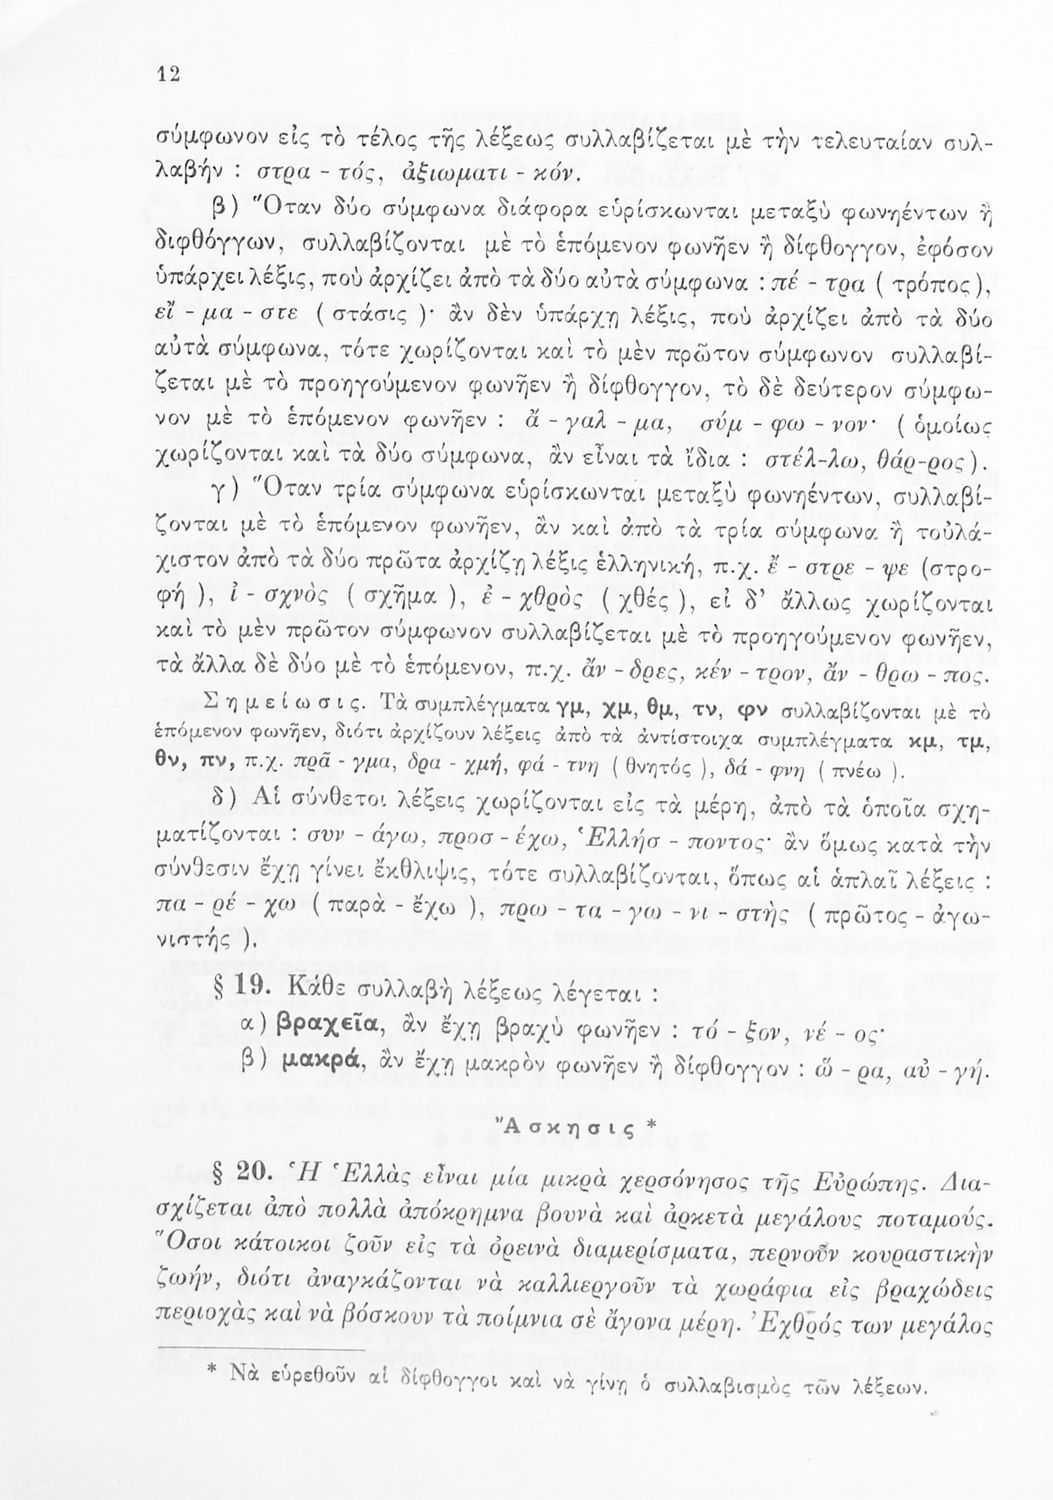 12
σύμφωνον εἰς τὸ τέλος τῆς λέξεως συλλαβίζεται μὲ τὴν τελευταίαν συλ-
λαβήν : στρα - τός, ἀξιωματι - κόν.
β) Ὅταν δύο σύμφωνα διάφορα εὑρίσκωνται μεταξὺ φωνηέντων ἢ
διφθόγγων, συλλαβίζονται μὲ τὸ ἑπόμενον φωνῆεν ἢ δίφθογγον, ἐφόσον
ὑπάρχει λέξις, ποὺ ἀρχίζει ἀπὸ τὰ δύο αὐτὰ σύμφωνα : πέ - τρα ( τρόπος ),
εἴ - μα - στε ( στάσις )· ἂν δὲν ὑπάρχῃ λέξις, ποὺ ἀρχίζει ἀπὸ τὰ δύο
αὐτὰ σύμφωνα, τότε χωρίζονται καὶ τὸ μὲν πρῶτον σύμφωνον συλλαβί-
ζεται μὲ τὸ προηγούμενον φωνῆεν ἢ δίφθογγον, τὸ δὲ δεύτερον σύμφω-
νον μὲ τὸ ἑπόμενον φωνῆεν : ἄ - γαλ - μα, σύμ - φω - νον· ( ὁμοίως
χωρίζονται καὶ τὰ δύο σύμφωνα, ἂν εἶναι τὰ ἴδια : στέλ-λω, θάρ-ρος ).
γ) Ὅταν τρία σύμφωνα εὑρίσκωνται μεταξὺ φωνηέντων, συλλαβί-
ζονται μὲ τὸ ἑπόμενον φωνῆεν, ἂν καὶ ἀπὸ τὰ τρία σύμφωνα ἢ τοὐλά-
χιστον ἀπὸ τὰ δύο πρῶτα ἀρχίζῃ λέξις ἑλληνική, π.χ. ἔ - στρε - ψε (στρο-
φή ), ἰ - σχνὸς ( σχῆμα ), ἐ - χθρὸς ( χθές ), εἰ δ’ ἄλλως χωρίζονται
καὶ τὸ μὲν πρῶτον σύμφωνον συλλαβίζεται μὲ τὸ προηγούμενον φωνῆεν,
τὰ ἄλλα δὲ δύο μὲ τὸ ἑπόμενον, π.χ. ἄν - δρες, κέν - τρον, ἄν - θρω - πος.
Σημείωσις. Τὰ συμπλέγματα γμ, χμ, θμ, τν, φν συλλαβίζονται μὲ τὸ
ἑπόμενον φωνῆεν, διότι ἀρχίζουν λέξεις ἀπὸ τὰ ἀντίστοιχα συμπλέγματα κμ, τμ,
θν, πν, π.χ. πρᾶ - γμα, δρα - χμή, φά - τνη ( θνητός ), δά - φνη ( πνέω ).
δ) Αἱ σύνθετοι λέξεις χωρίζονται εἰς τὰ μέρη, ἀπὸ τὰ ὁποῖα σχη-
ματίζονται : συν - άγω, προσ - έχω, Ἑλλήσ - ποντος· ἂν ὅμως κατὰ τὴν
σύνθεσιν ἔχῃ γίνει ἔκθλιψις, τότε συλλαβίζονται, ὅπως αἱ ἁπλαῖ λέξεις :
πα - ρέ - χω ( παρὰ - ἔχω ), πρω - τα - γω - νι - στὴς ( πρῶτος - ἀγω-
νιστής ).
§ 19. Κάθε συλλαβὴ λέξεως λέγεται :
α) βραχεῖα, ἂν ἔχῃ βραχὺ φωνῆεν : τό - ξον, νέ - ος·
β) μακρά, ἂν ἔχῃ μακρὸν φωνῆεν ἢ δίφθογγον : ὥ - ρα, αὐ - γή.
Ἄσκησις *
§ 20. Ἡ Ἑλλὰς εἶναι μία μικρὰ χερσόνησος τῆς Εὐρώπης. Δια-
σχίζεται ἀπὸ πολλὰ ἀπόκρημνα βουνὰ καὶ ἀρκετὰ μεγάλους ποταμούς.
Ὅσοι κάτοικοι ζοῦν εἰς τὰ ὀρεινὰ διαμερίσματα, περνοῦν κουραστικὴν
ζωήν, διότι ἀναγκάζονται νὰ καλλιεργοῦν τὰ χωράφια εἰς βραχώδεις
περιοχὰς καὶ νὰ βόσκουν τὰ ποίμνια σὲ ἄγονα μέρη. Ἐχθρός των μεγάλος
* Νὰ εὑρεθοῦν αἱ δίφθογγοι καὶ νὰ γίνῃ ὁ συλλαβισμὸς τῶν λέξεων.